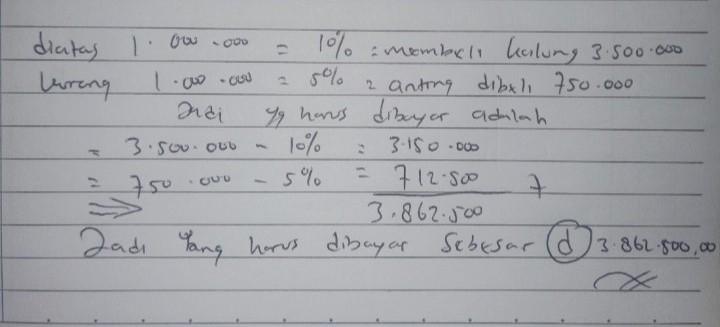 diatas 1.000.000 = 10% : membeli kalung 3.500.000
kurang 1.000.000 = 5% = anting dibeli 750.000
Jadi yg harus dibayar adalah
= 3.500.000 - 10% = 3.150.000
= 750.000 - 5% = 712.500 +
⇒ 3.862.500
Jadi Yang harus dibayar Sebesar (d) 3.862.500,00